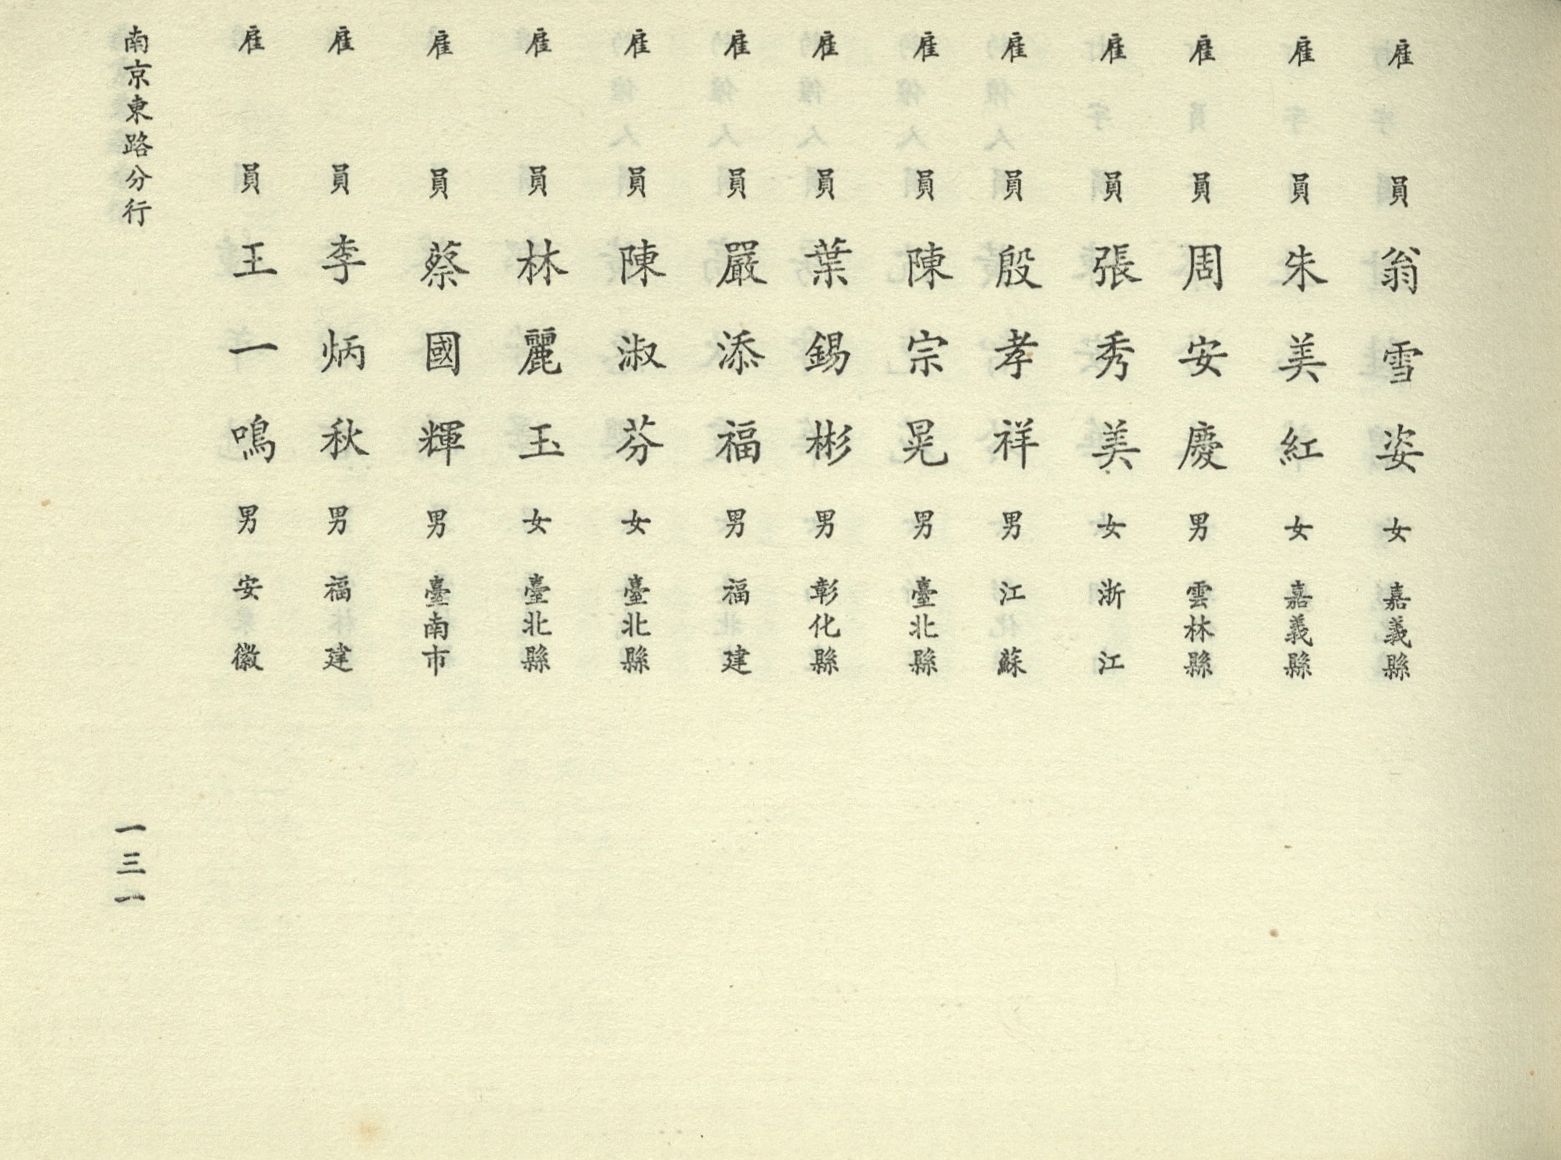 雇員翁雪姿女嘉義縣
雇員朱美紅女嘉義縣
雇員周安慶男雲林縣
雇員張秀美女浙江
雇員殷孝祥男江蘇
雇員陳宗晃男臺北縣
雇員葉錫彬男彰化縣
雇員嚴添福男福建
雇員陳淑芬女臺北縣
雇員林麗玉女臺北縣
雇員蔡國輝男臺南市
雇員李炳秋男福建
雇員王一鳴男安徽
南京東路分行
一三一